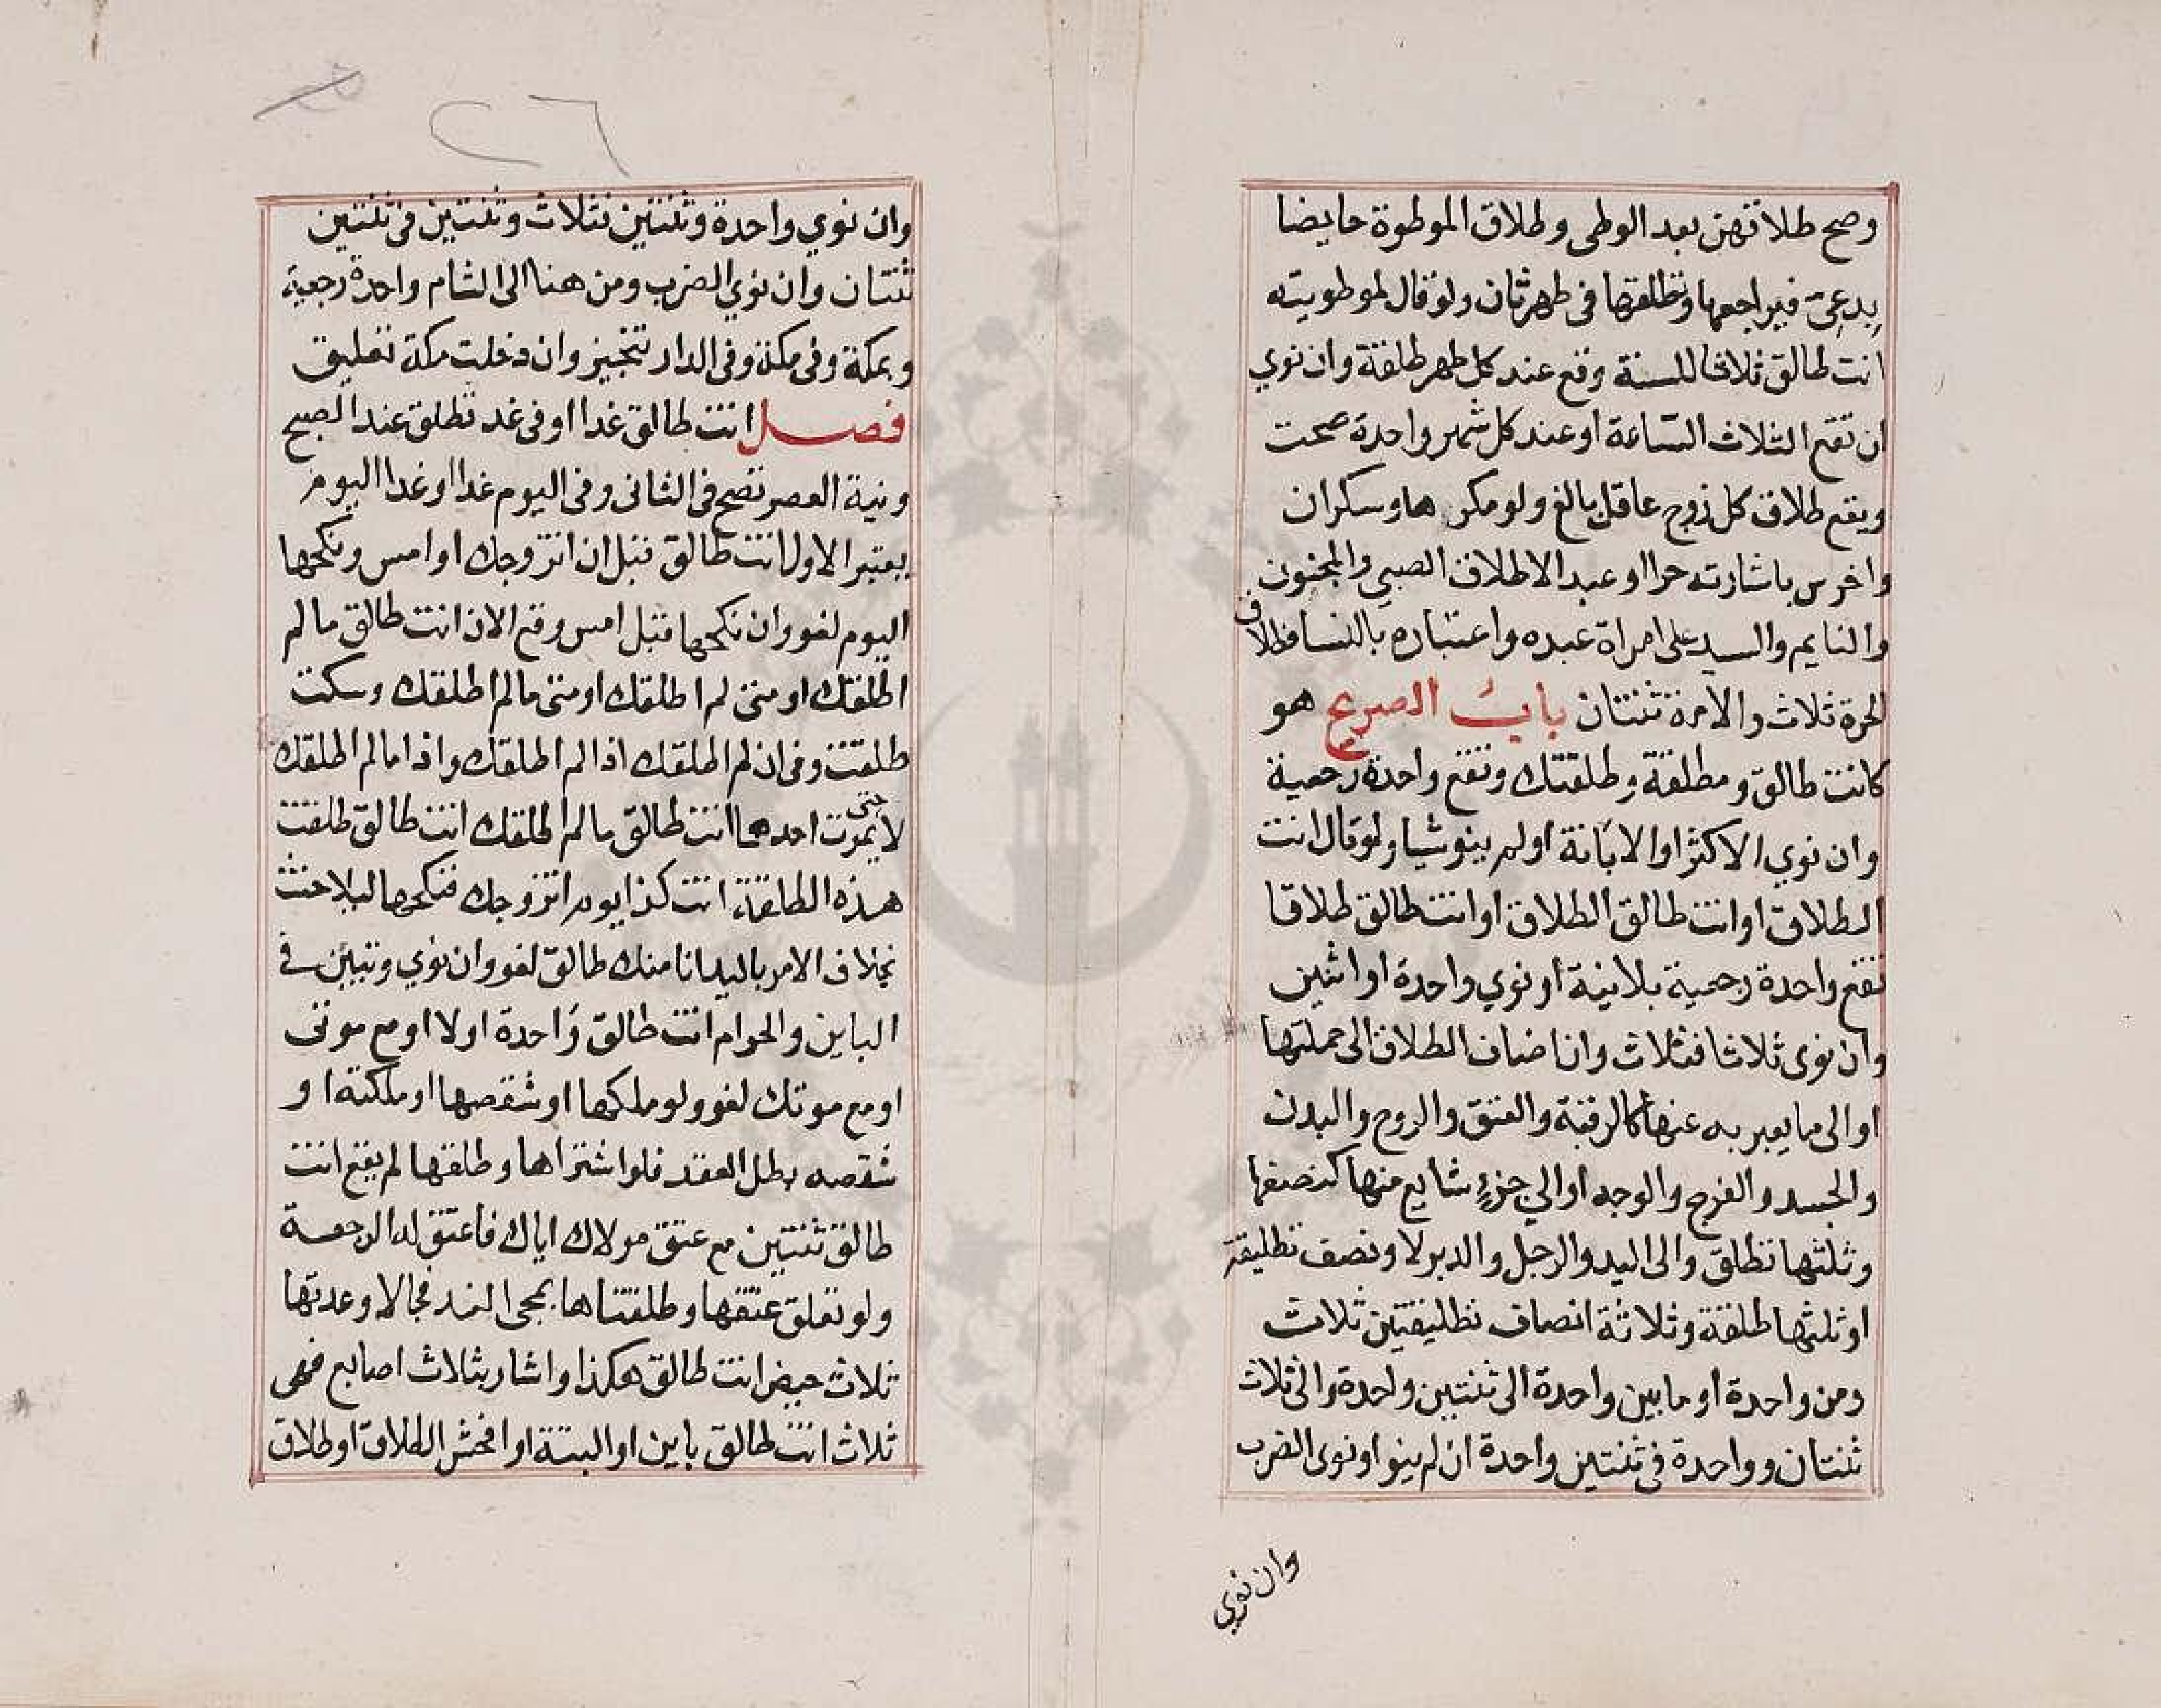 وصح طلاقهن بعد الوطى وطلاق الموطوة حايضا
بدعى فيراجعها وتطلقها فى طهر ثان ولو قال لموطويته
انت طالق ثلاثا للسنة وقع عند كل طهر طلقة وان نوي
ان تقع الثلاث الساعة او عند كل شهر واحدة صحت
ويقع طلاق كل زوج عاقل بالغ ولو مكرها وسكران
واخرس باشارته حرا او عبدا لا طلاق الصبي والمجنون
والنايم والسيد على امراة عبده واعتباره بالنسا فطلاق
الحرة ثلاث والامة ثنتان باب الصريح هو
كانت طالق ومطلقة وطلقتك وتقع واحدة رجعية
وان نوي الاكثر او الابانة او لم ينو شيا ولو قال انت
الطلاق او انت طالق الطلاق او انت طالق طلاقا
تقع واحدة رجعية بلا نية او نوي واحدة او اثنين
وان نوى ثلاثا فثلاث وان اضاف الطلاق الى جملتها
او الى ما يعبر به عنها كالرقبة والعنق والروح والبدن
والجسد والفرج والوجه او الي جزء شايع منها كنصفها
وثلثها تطلق والى اليد والرجل والدبر لا ونصف تطليقة
او ثلثها طلقة وثلاثة انصاف تطليقتين ثلاث
ومن واحدة او ما بين واحدة الى ثنتين واحدة والى ثلاث
ثنتان وواحدة فى ثنتين واحدة ان لم ينو او نوى الضرب
وان نوي
٢٦
وان نوي واحدة وثنتين فثلاث وثنتين فى ثنتين
ثنتان وان نوي الضرب ومن هنا الى الشام واحدة رجعية
وبمكة وفى مكة وفى الدار تنجيز وان دخلت مكة تعليق
فصل انت طالق غدا او فى غد تطلق عند الصبح
ونية العصر تصح فى الثانى وفى اليوم غدا او غدا اليوم
يعتبر الاول انت طالق قبل ان اتزوجك او امس ونكحها
اليوم لغو وان نكحها قبل امس وقع الان انت طالق ما لم
اطلقك او متى لم اطلقك او متى ما لم اطلقك وسكت
طلقت وفى ان لم اطلقك اذا لم اطلقك واذا ما لم اطلقك
لا حتى يموت احدهما انت طالق ما لم اطلقك انت طالق طلقت
هذه الطلقة انت كذا يوم اتزوجك فنكحها ليلا حنث
بخلاف الامر باليد انا منك طالق لغو وان نوي وتبين فى
الباين والحرام انت طالق واحدة او لا او مع موتى
او مع موتك لغو ولو ملكها او شقصها او ملكته او
شقصه بطل العقد فلو اشتراها وطلقها لم يقع انت
طالق ثنتين مع عتق مولاك اياك فاعتق له الرجعة
ولو تعلق عتقها وطلقتاها بمجى الغد فجا لا وعدتها
ثلاث حيض انت طالق هكذا واشار بثلاث اصابع فهى
ثلاث انت طالق باين او البتة او افحش الطلاق او طلاق